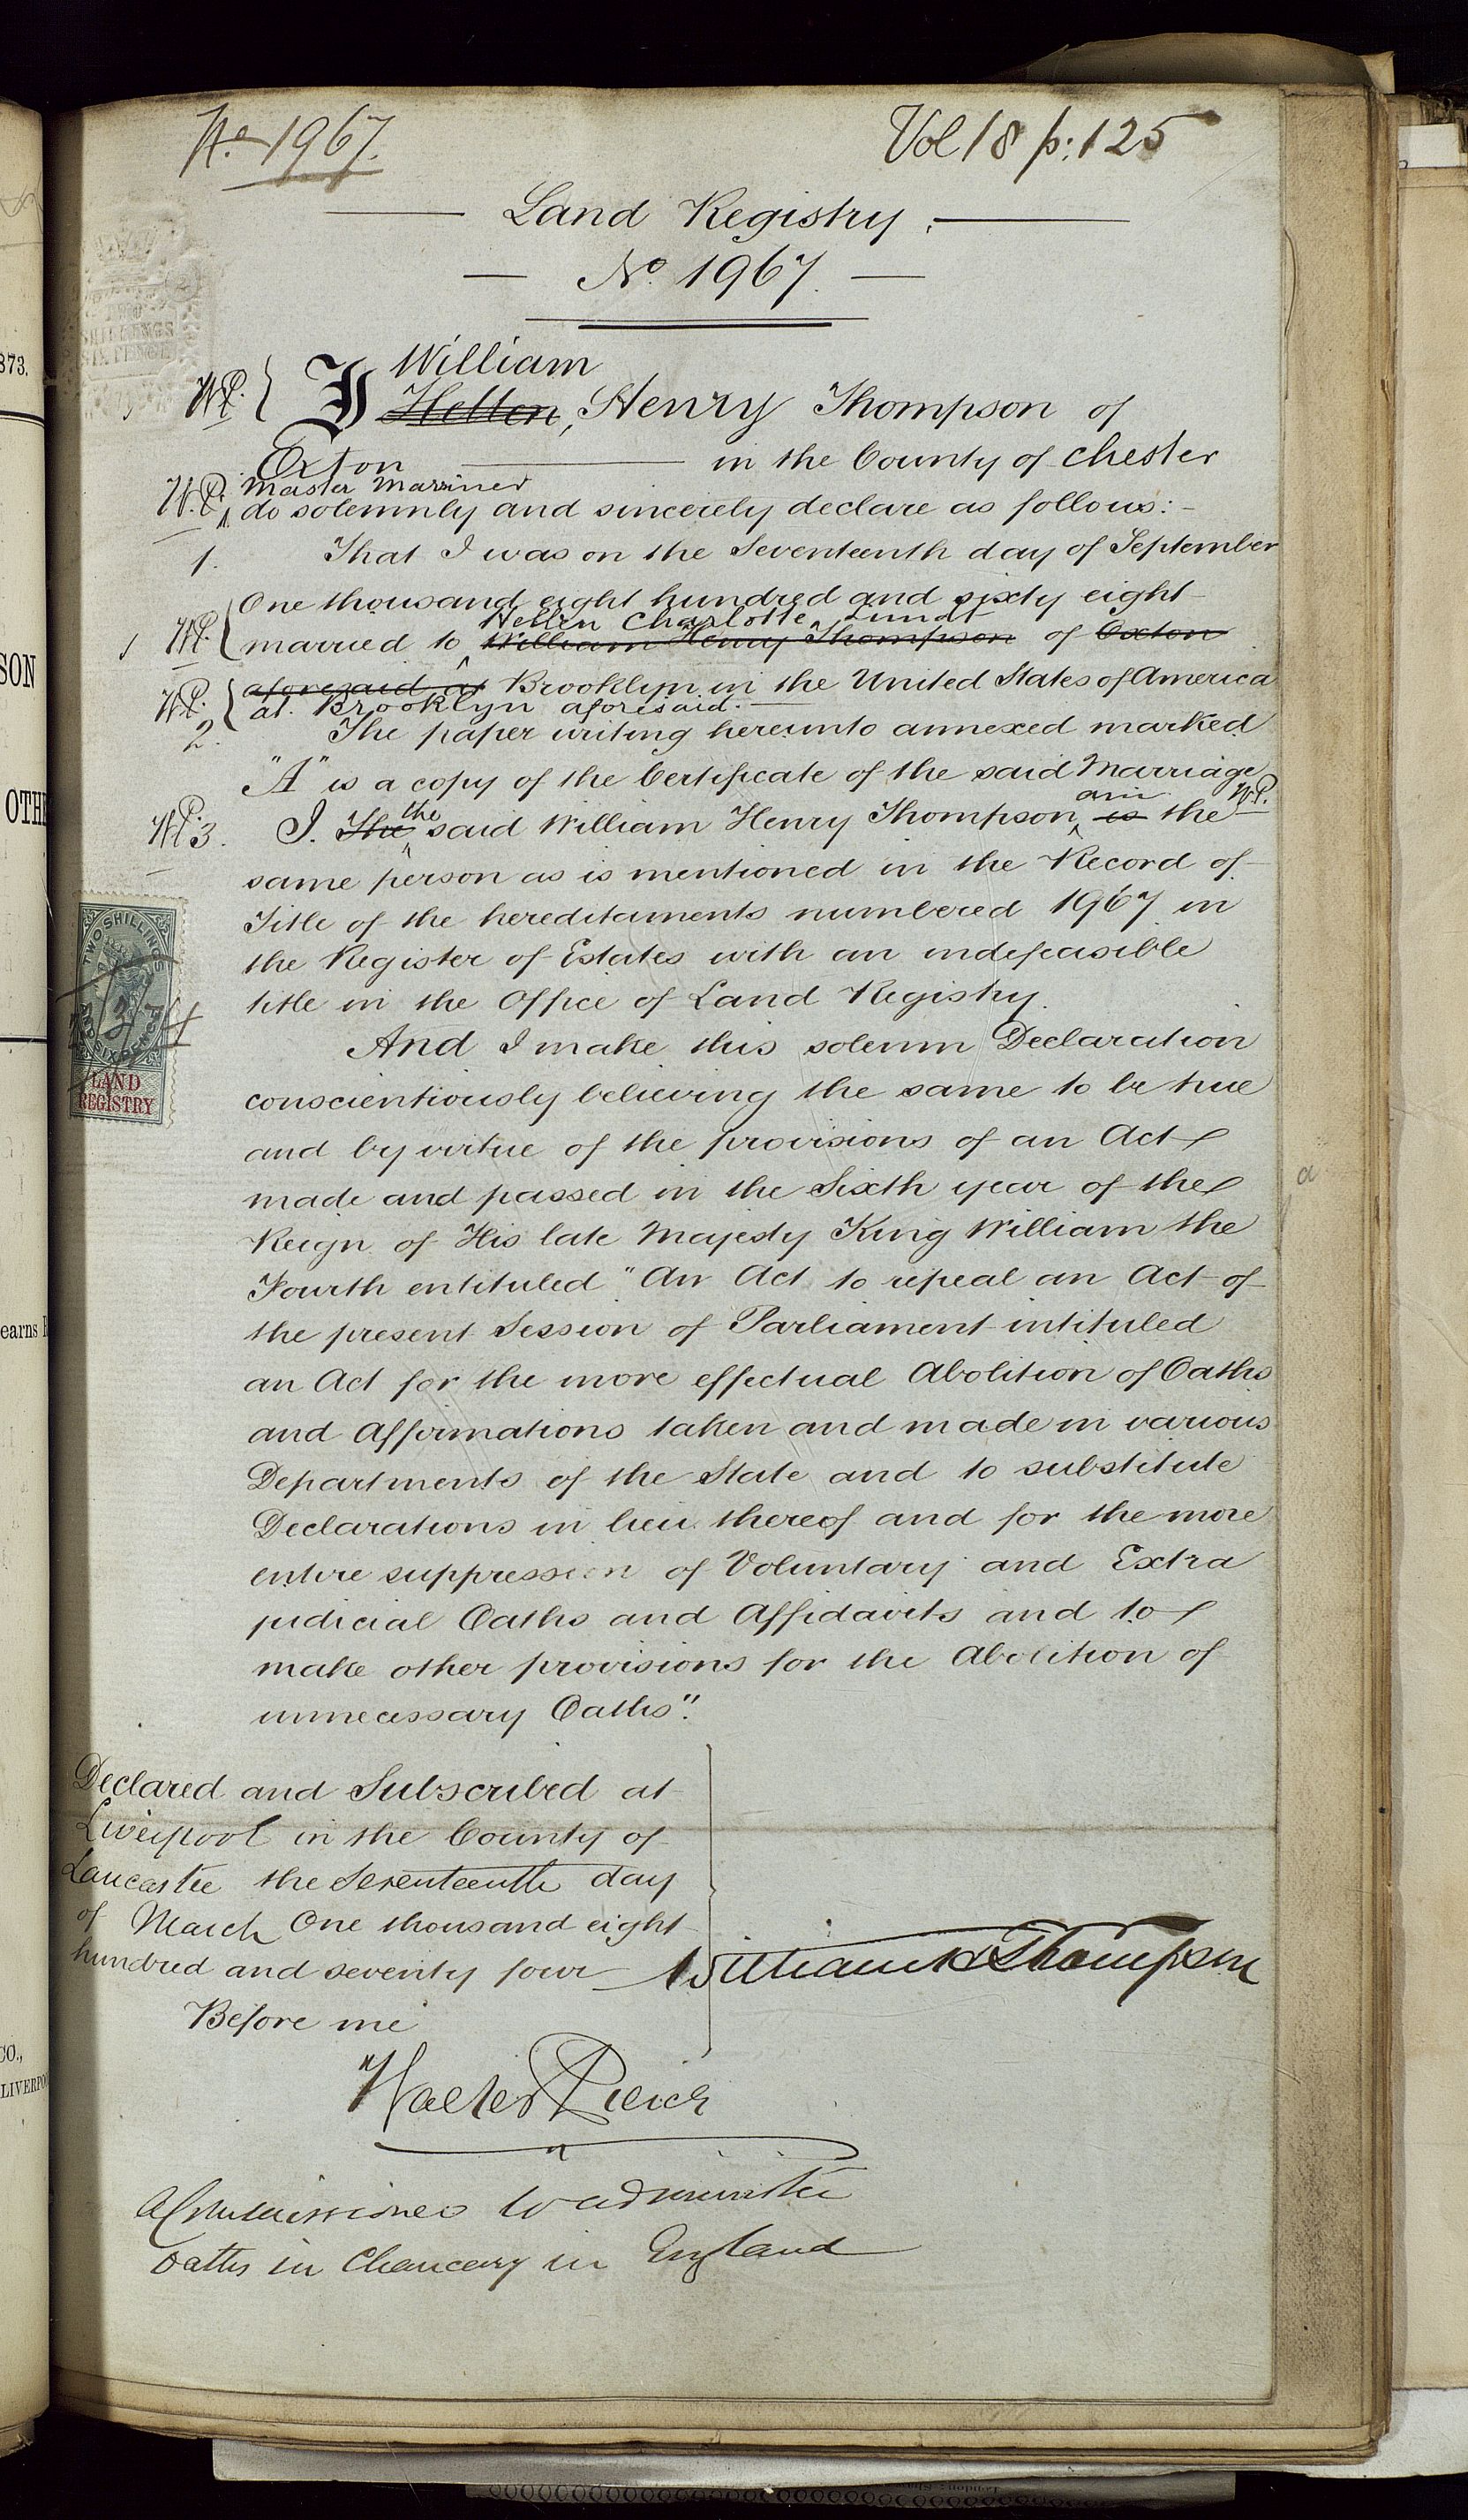 No. 1967.
Vol 18 p: 125
Land Registry.
No. 1967.
TWO
SHILLINGS
SIX PENCE
W.P. I William
Hellen, Henry Thompson of
Oxton in the County of Chester
Master Marriner
W.P. do solemnly and sincerely declare as follows:-
1. That I was on the Seventeenth day of September
One thousand eight hundred and sixty eight
Hellen Charlotte Lundt
W.P. married to William Henry Thompson of Oxton
W.P. aforesaid at Brooklyn in the United States of America
at Brooklyn aforesaid.
2. The paper writing hereunto annexed marked
"A" is a copy of the Certificate of the said Marriage
the am W.P.
W.P. 3. I. The said William Henry Thompson is the
same person as is mentioned in the Record of
Title of the hereditaments numbered 1967 in
the Register of Estates with an indefeasible
title in the Office of Land Registry.
TWO SHILLINGS
AND SIXPENCE
LAND
REGISTRY
And I make this solemn Declaration
conscientiously believing the same to be true
and by virtue of the provisions of an Act
made and passed in the Sixth year of the
Reign of His late Majesty King William the
Fourth entituled "An Act to repeal an Act of
the present Session of Parliament intituled
an Act for the more effectual Abolition of Oaths
and Affirmations taken and made in various
Departments of the State and to substitute
Declarations in lieu thereof and for the more
entire suppression of Voluntary and Extra
judicial Oaths and Affidavits and to
make other provisions for the Abolition of
unnecessary Oaths".
Declared and Subscribed at
Liverpool in the County of
Lancaster the Seventeenth day
of March One thousand eight
hundred and seventy four
William H Thompson
Before me
Walter
A Commissioner to administer
oaths in Chancery in England
873.
SON
OTHE
earns
CO.,
LIVERPO